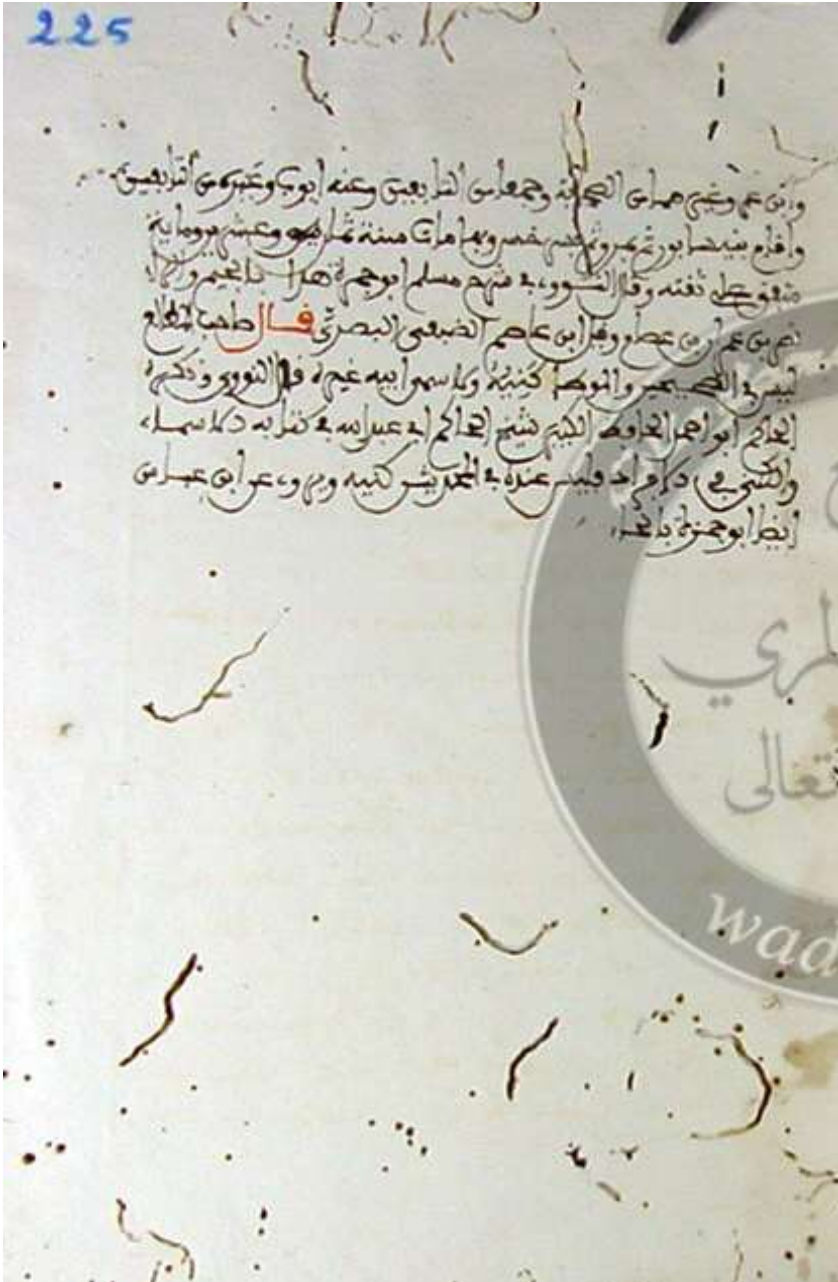 225
وابن عمر وغيرهما من الصحابة وجمعا من التابعين وعنه ايوب وغيره من التابعين
واقام بنيسابور ثم بمرو ثم بسرخس وبها مات سنة ثمان وعشرين ومائة
متفق على ثقته وقال النووي في شرح مسلم ابو جمرة هذا بالجيم والراء
نصر بن عمران بن عصام وقيل ابن عاصم الضبعي البصري قال صاحب المطالع
ليس في الصحيحين والموطا كنيته ولا اسم ابيه غيره قال النووي وذكره
الحاكم ابو احمد الحافظ الكبير شيخ الحاكم ابي عبد الله في كتابه الاسماء
والكنى في الافراد فليس عنده في المحدثين كنيته ويروي عن ابن عباس
ايضا ابو حمزة بالحاء
لري
تعالى
wad